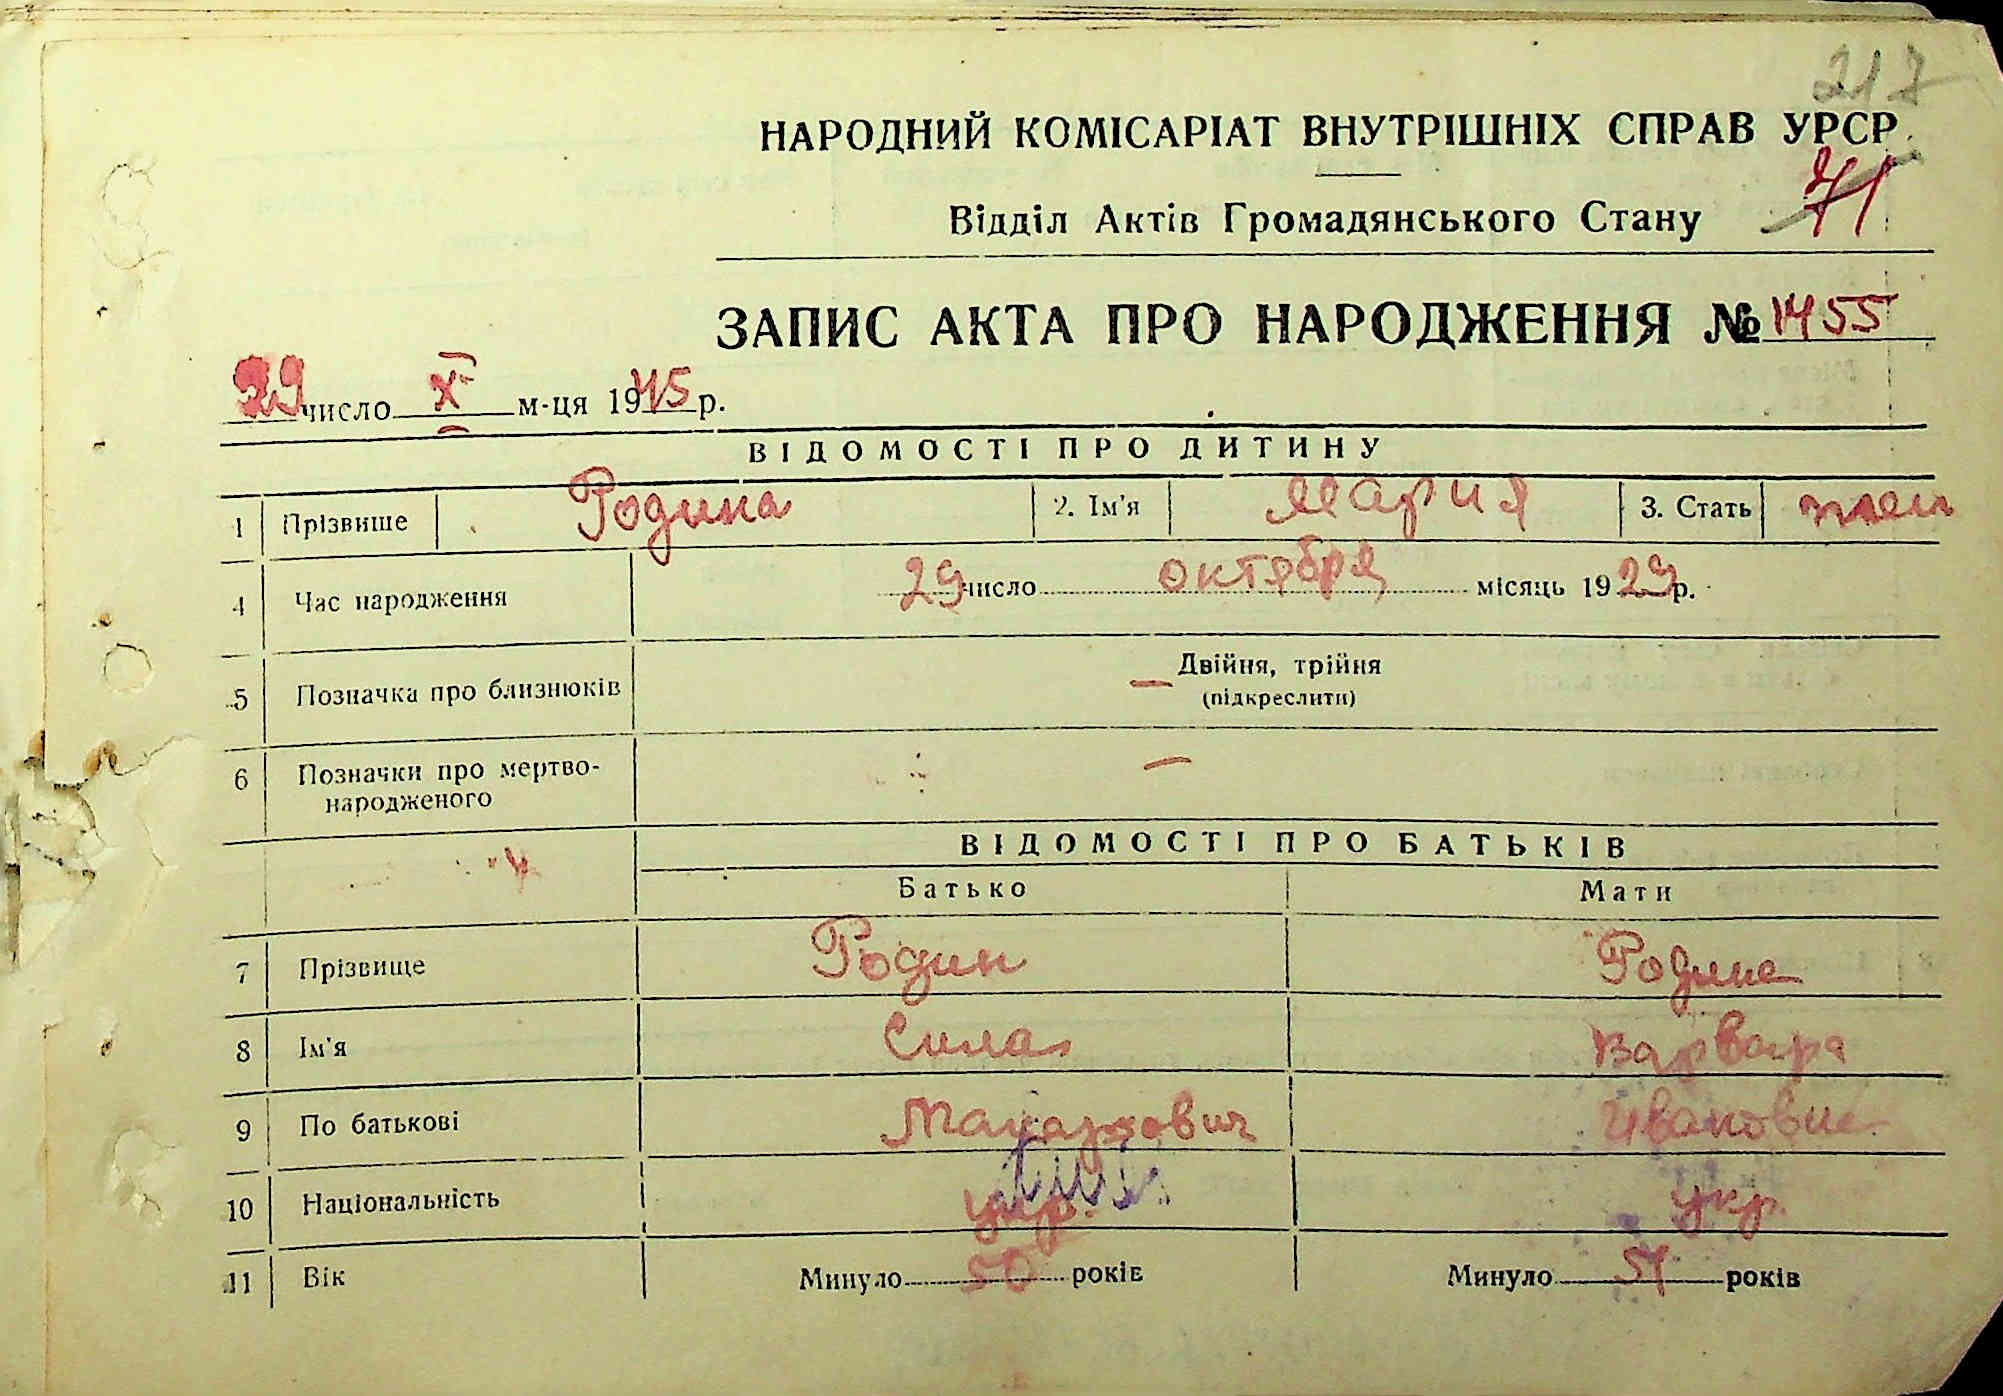 217
НАРОДНИЙ КОМІСАРІАТ ВНУТРІШНІХ СПРАВ УРСР
71
Відділ Актів Громадянського Стану
ЗАПИС АКТА ПРО НАРОДЖЕННЯ № 1455
29 число X м-ця 1945 р.
ВІДОМОСТІ ПРО ДИТИНУ
1 Прізвише Родина 2. Ім'я Мария 3. Стать жен
4 Час народження 29 число октября місяць 1923 р.
5 Позначка про близнюків — Двійня, трійня
(підкреслити)
6 Позначки про мертво-
народженого —
ВІДОМОСТІ ПРО БАТЬКІВ
Батько Мати
7 Прізвище Родин Родина
8 Ім'я Сила Варвара
9 По батькові Макарович Ивановна
10 Національність укр. укр.
11 Вік Минуло 50 років Минуло 51 років